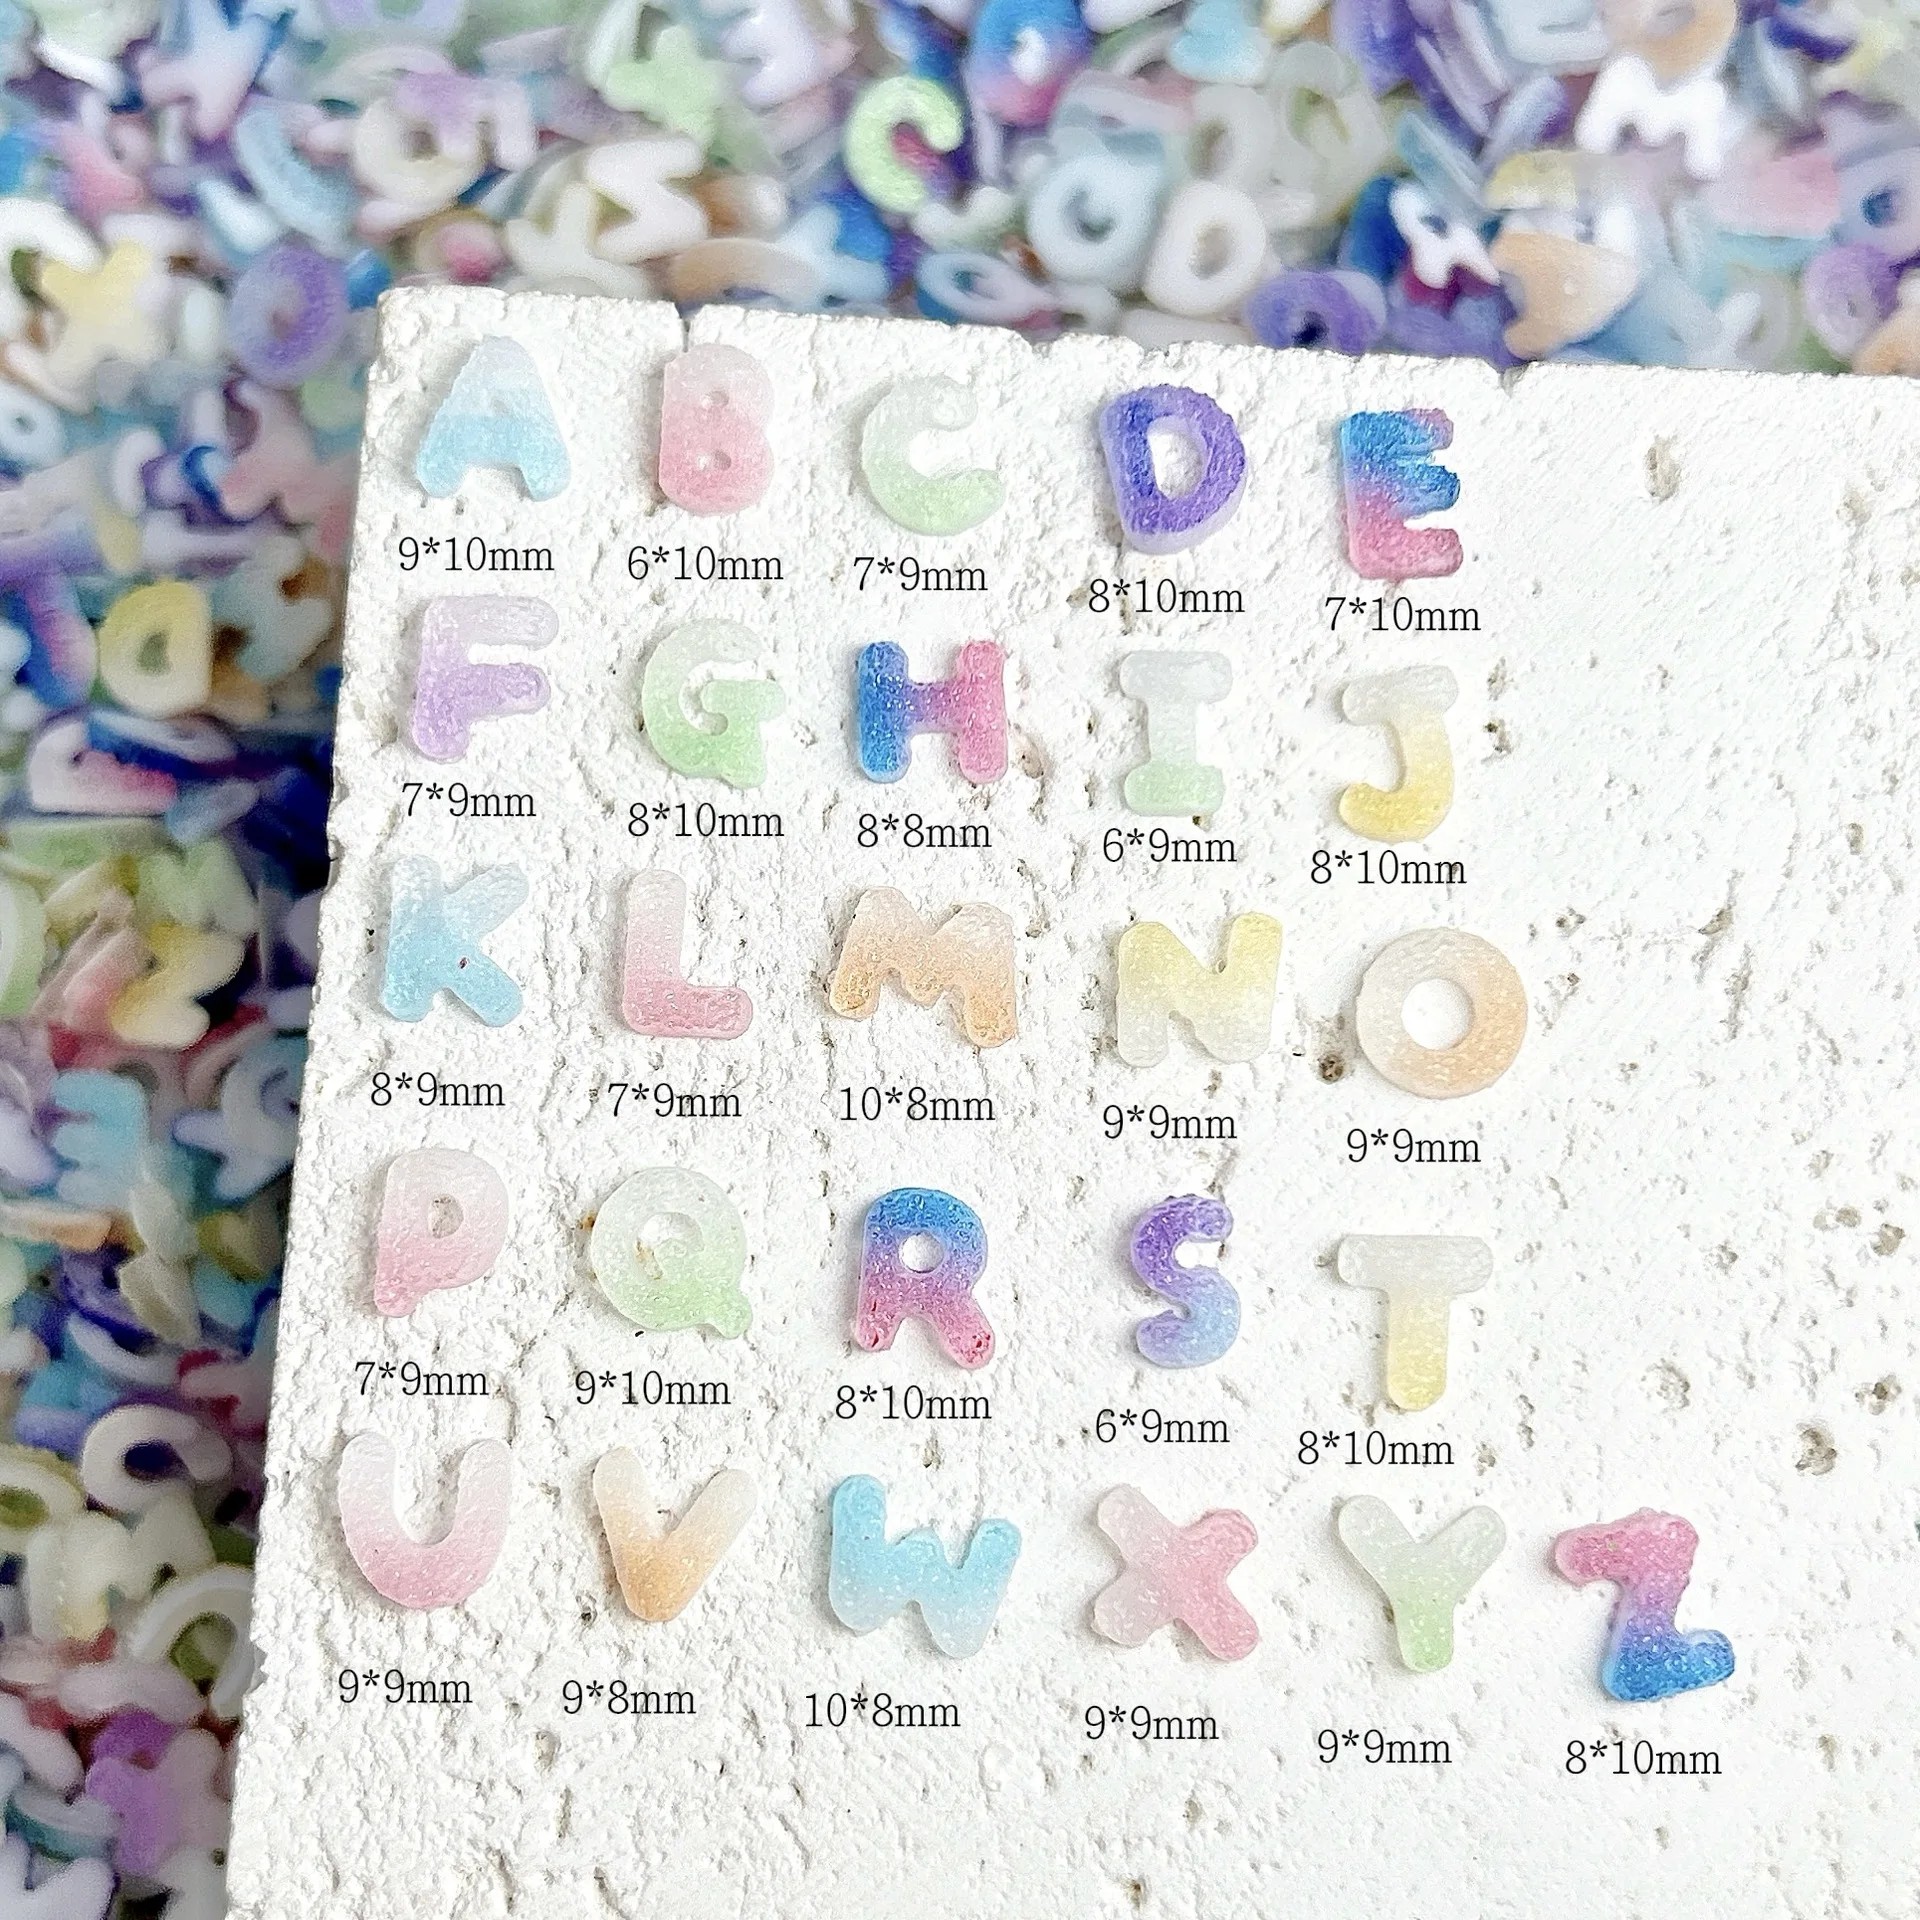 A B C D E
9*10mm 6*10mm 7*9mm 8*10mm 7*10mm
F G H I J
7*9mm 8*10mm 8*8mm 6*9mm 8*10mm
K L M N O
8*9mm 7*9mm 10*8mm 9*9mm 9*9mm
P Q R S T
7*9mm 9*10mm 8*10mm 6*9mm 8*10mm
U V W X Y Z
9*9mm 9*8mm 10*8mm 9*9mm 9*9mm 8*10mm